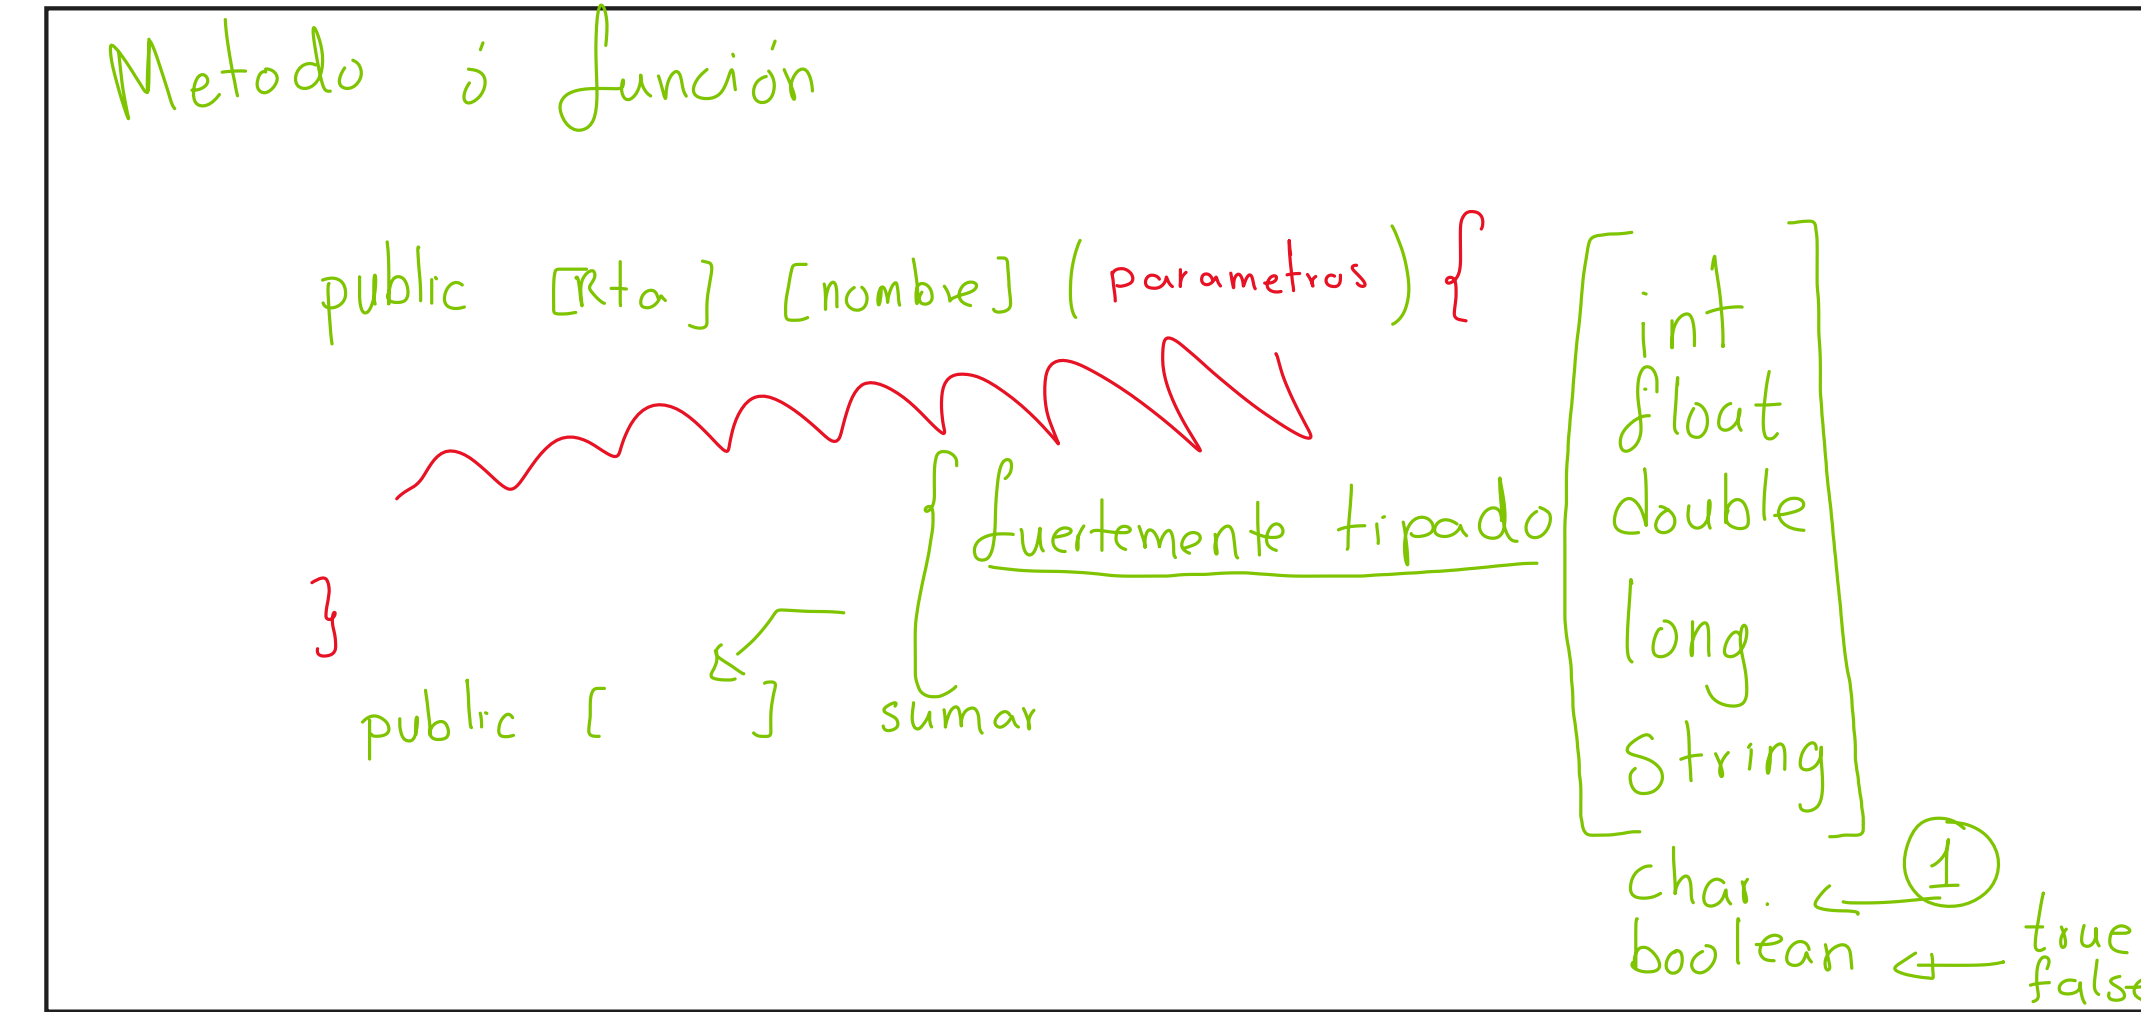 Metodo ó función
public [Rta] [nombre] (parametros) {
}
{ fuertemente tipado
public [ ] sumar
int
float
double
long
String
char. ← 1
boolean ← true
false